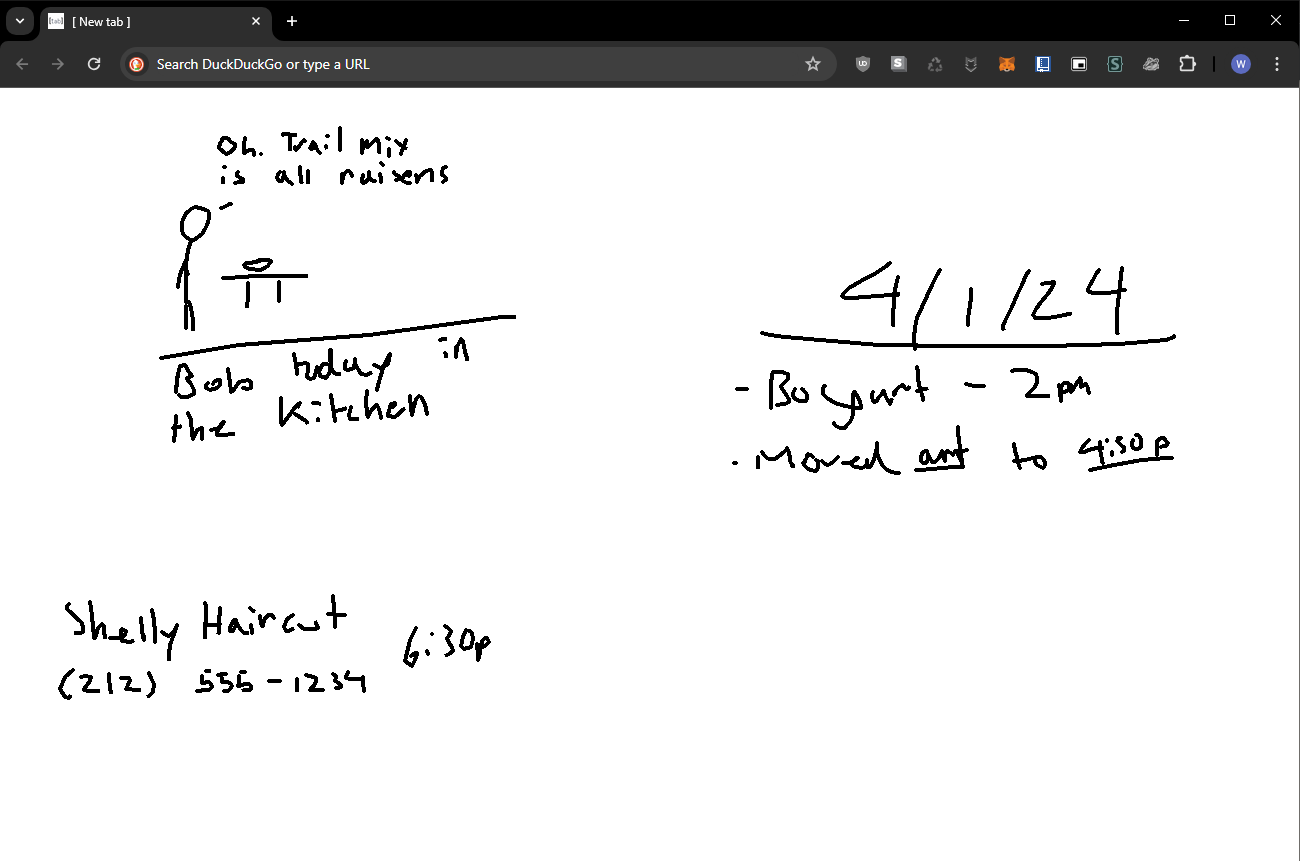 [ New tab ]
Search DuckDuckGo or type a URL
W
Oh. Trail mix
is all raisens
Bob today in
the Kitchen
4/1/24
- - 2pm
. Moved to 4:30p
Shelly Haircut
6:30p
(212) 555-1234